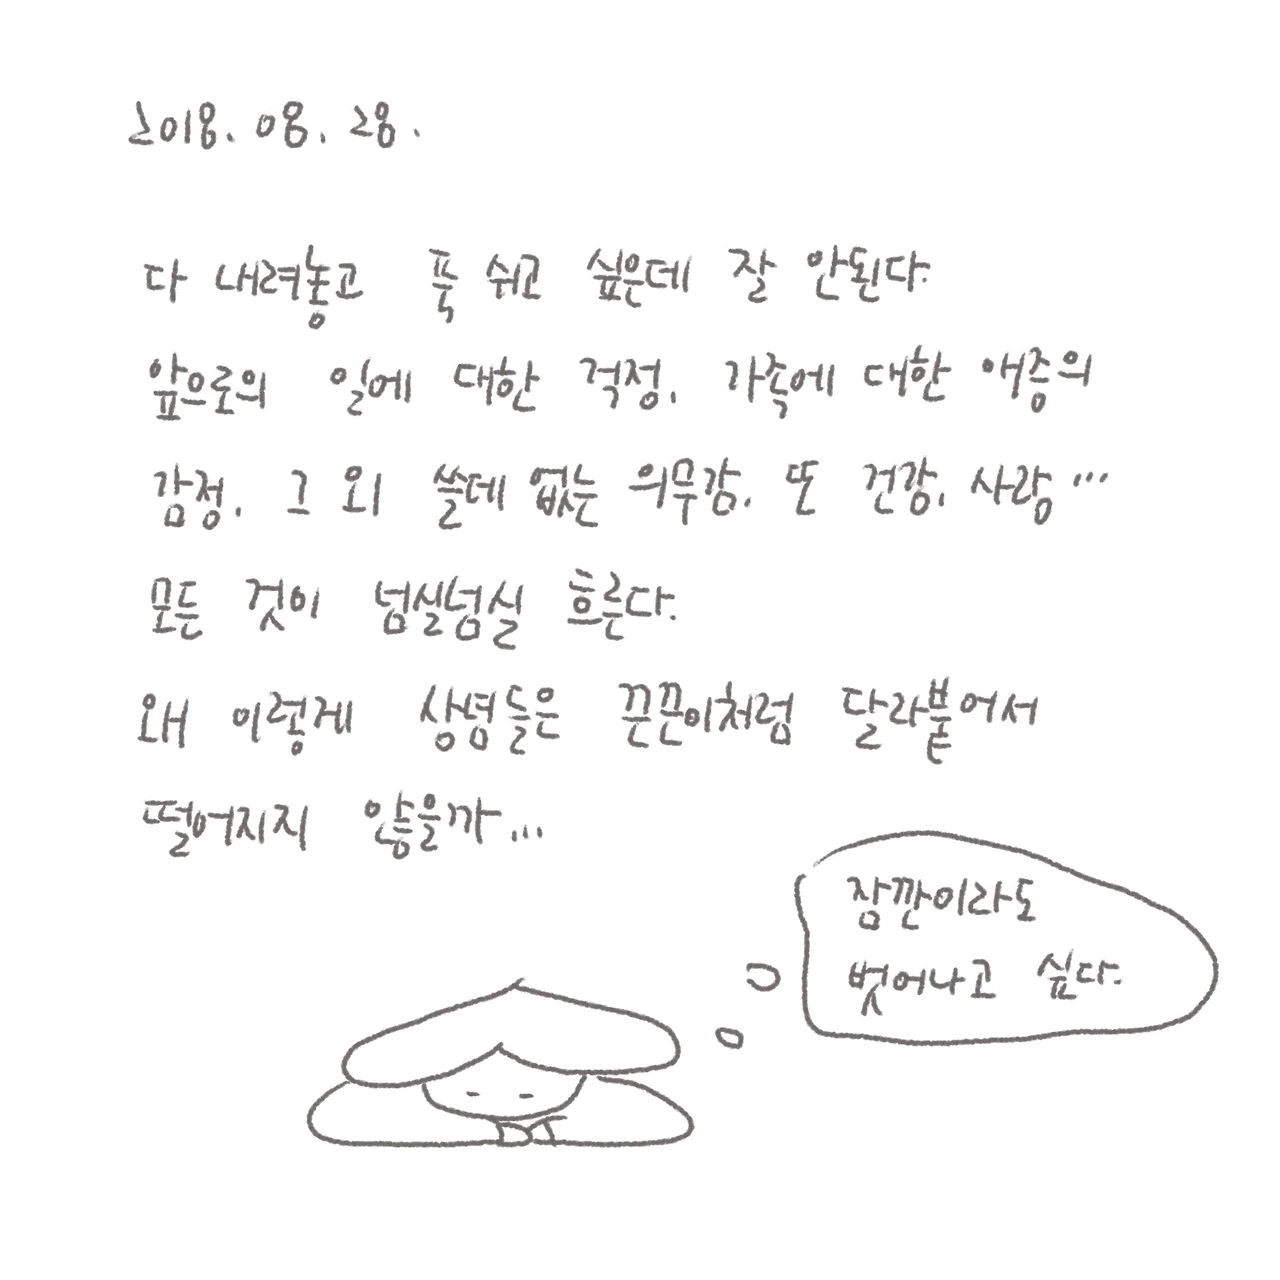 2018. 08. 28.
다 내려놓고 푹 쉬고 싶은데 잘 안된다.
앞으로의 일에 대한 걱정, 가족에 대한 애증의
감정, 그 외 쓸데없는 의무감, 또 건강, 사랑…
모든 것이 넘실넘실 흐른다.
왜 이렇게 상념들은 끈끈이처럼 달라붙어서
떨어지지 않을까...
잠깐이라도
벗어나고 싶다.